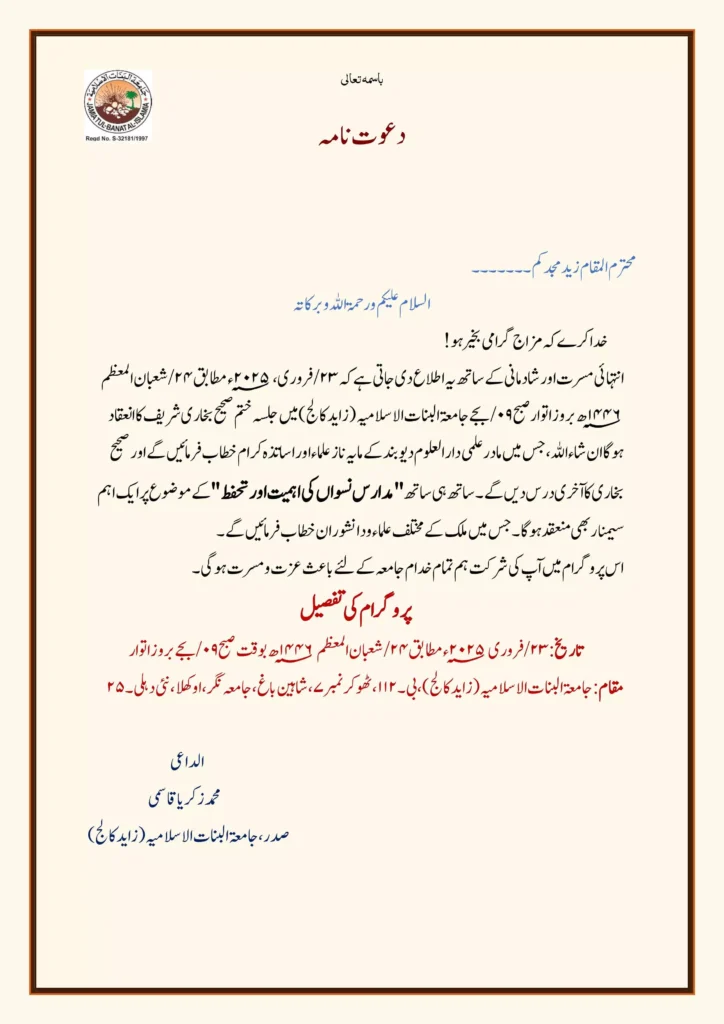 باسمہ تعالی
جامعۃ البنات الاسلامیۃ
JAMIATUL-BANAT AL-ISLAMIA
Regd No. S-32181/1997
دعوت نامہ
محترم المقام زید مجدکم۔۔۔۔۔۔۔
السلام علیکم ورحمۃ اللہ وبرکاتہ
خدا کرے کہ مزاج گرامی بخیر ہو!
انتہائی مسرت اور شادمانی کے ساتھ یہ اطلاع دی جاتی ہے کہ ۲۳/فروری، ۲۰۲۵ء مطابق ۲۴/شعبان المعظم
۱۴۴۶ھ بروز اتوار صبح ۰۹/بجے جامعۃ البنات الاسلامیہ (زاید کالج) میں جلسہ ختم صحیح بخاری شریف کا انعقاد
ہوگا ان شاء اللہ، جس میں مادر علمی دار العلوم دیوبند کے مایہ ناز علماء اور اساتذہ کرام خطاب فرمائیں گے اور صحیح
بخاری کا آخری درس دیں گے۔ ساتھ ہی ساتھ "مدارس نسواں کی اہمیت اور تحفظ" کے موضوع پر ایک اہم
سیمنار بھی منعقد ہوگا۔ جس میں ملک کے مختلف علماء ودانشوران خطاب فرمائیں گے۔
اس پروگرام میں آپ کی شرکت ہم تمام خدام جامعہ کے لئے باعث عزت ومسرت ہوگی۔
پروگرام کی تفصیل
تاریخ: ۲۳/فروری ۲۰۲۵ء مطابق ۲۴/شعبان المعظم ۱۴۴۶ھ بوقت صبح ۰۹/بجے بروز اتوار
مقام: جامعۃ البنات الاسلامیہ (زاید کالج)، بی۔۱۱۲، ٹھوکر نمبر ۷، شاہین باغ، جامعہ نگر، اوکھلا، نئی دہلی۔۲۵
الداعی
محمد زکریا قاسمی
صدر، جامعۃ البنات الاسلامیہ (زاید کالج)